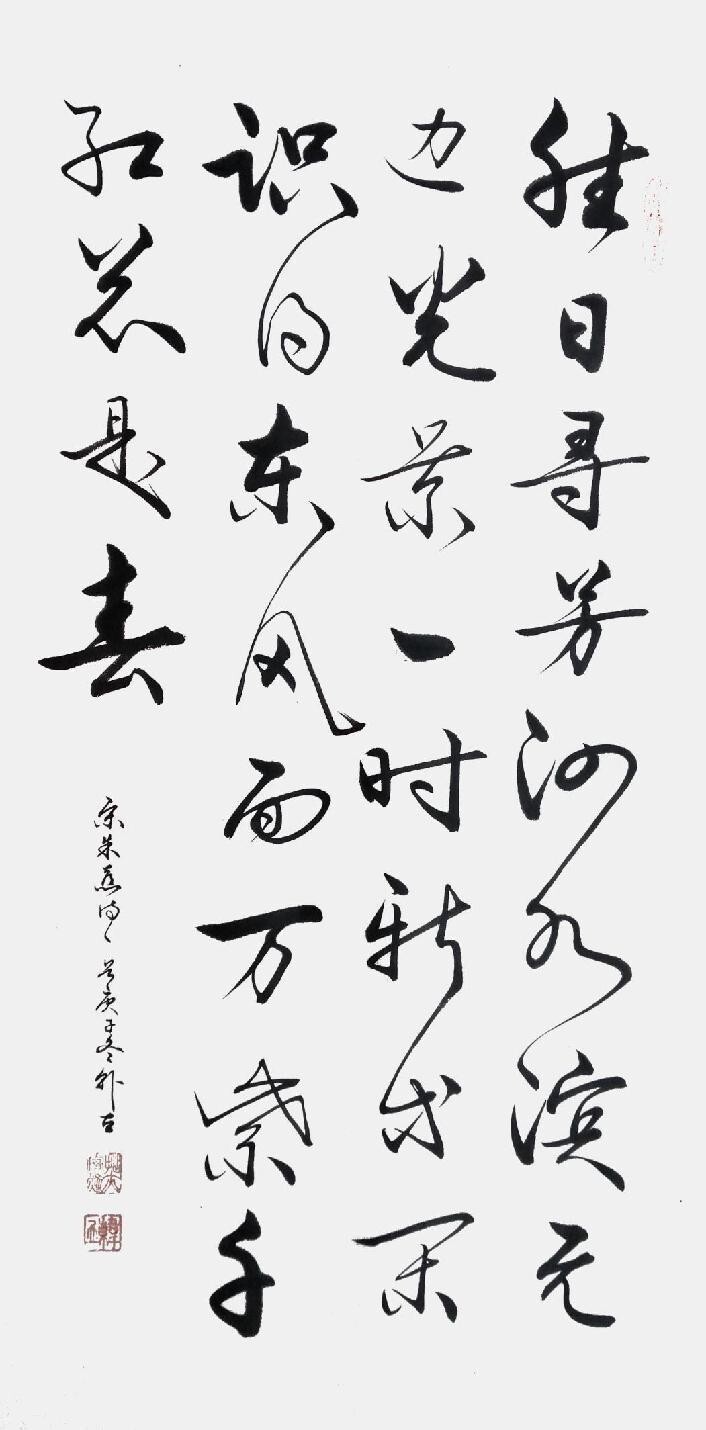 胜日寻芳泗水滨无
边光景一时新等闲
识得东风面万紫千
红总是春
宋朱熹诗一首庚子冬